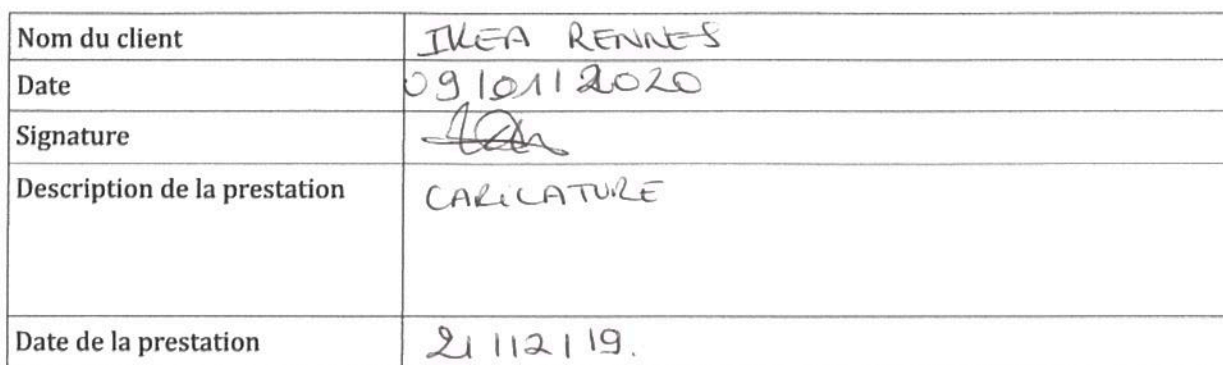 Nom du client IKEA RENNES
Date 09/01/2020
Signature
Description de la prestation CARiCATURE
Date de la prestation 21/12/19.